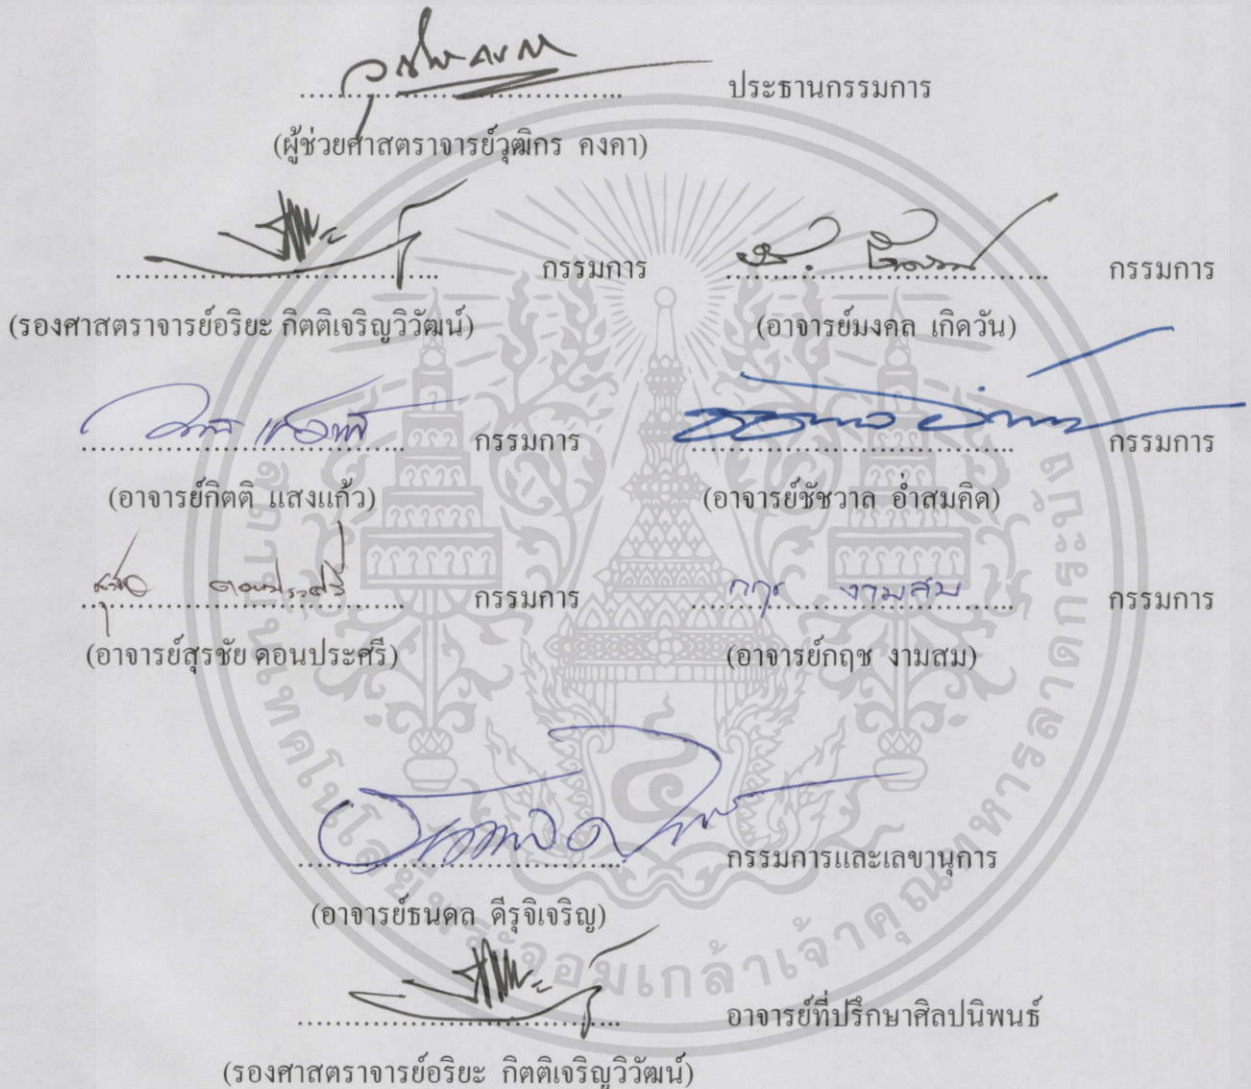 ประธานกรรมการ
(ผู้ช่วยศาสตราจารย์วุฒิกร คงคา)
กรรมการ กรรมการ
(รองศาสตราจารย์อริยะ กิตติเจริญวิวัฒน์) (อาจารย์มงคล เกิดวัน)
กรรมการ กรรมการ
(อาจารย์กิตติ แสงแก้ว) (อาจารย์ชัชวาล อ่ำสมคิด)
กรรมการ กฤช งามสม กรรมการ
(อาจารย์สุรชัย ดอนประศรี) (อาจารย์กฤช งามสม)
กรรมการและเลขานุการ
(อาจารย์ธนดล ดีรุจิเจริญ)
อาจารย์ที่ปรึกษาศิลปนิพนธ์
(รองศาสตราจารย์อริยะ กิตติเจริญวิวัฒน์)
สถาบันเทคโนโลยีพระจอมเกล้าเจ้าคุณทหารลาดกระบัง